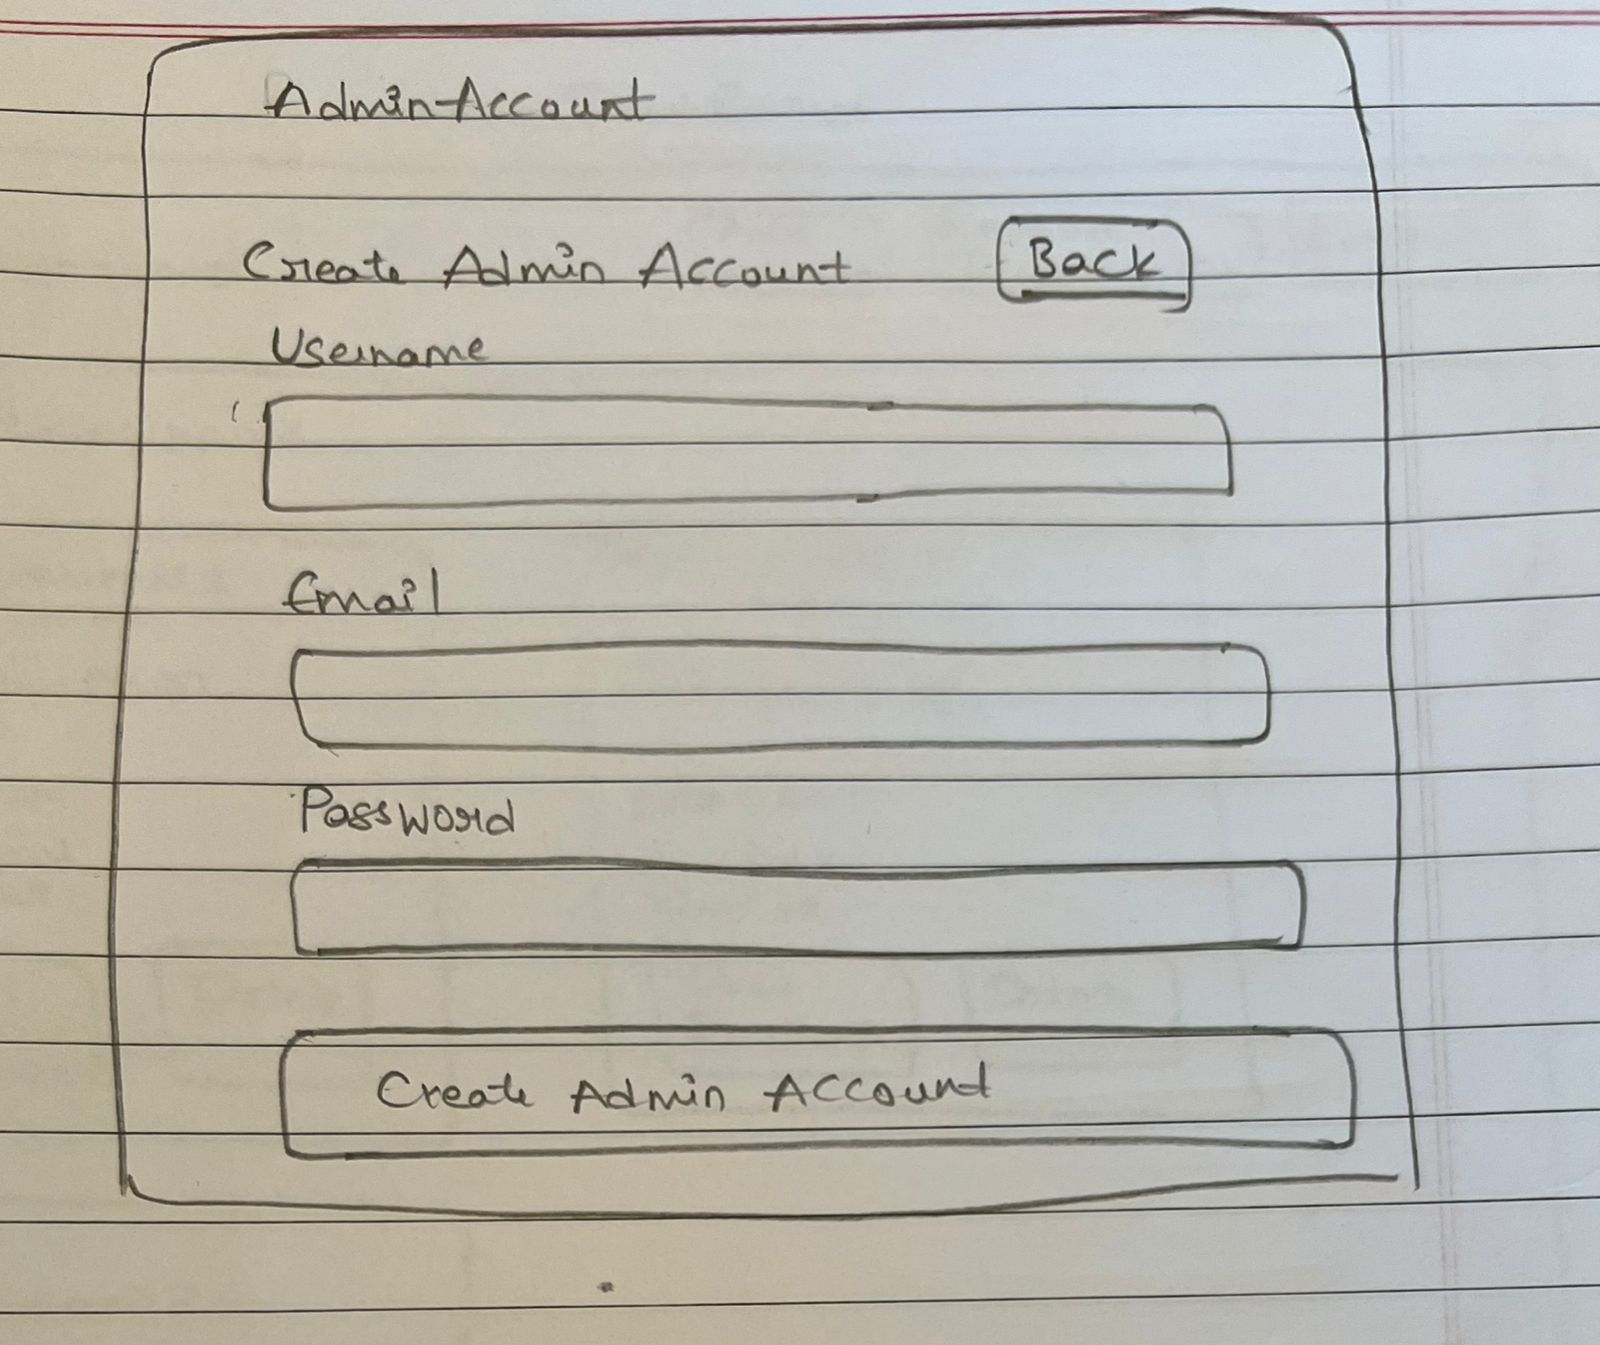 Admin-Account
Create Admin Account Back
Username
Email
Password
Create Admin Account